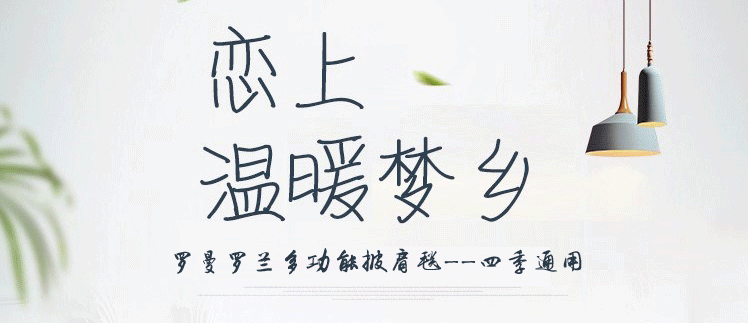 恋上
温暖梦乡
罗曼罗兰多功能披肩毯--四季通用